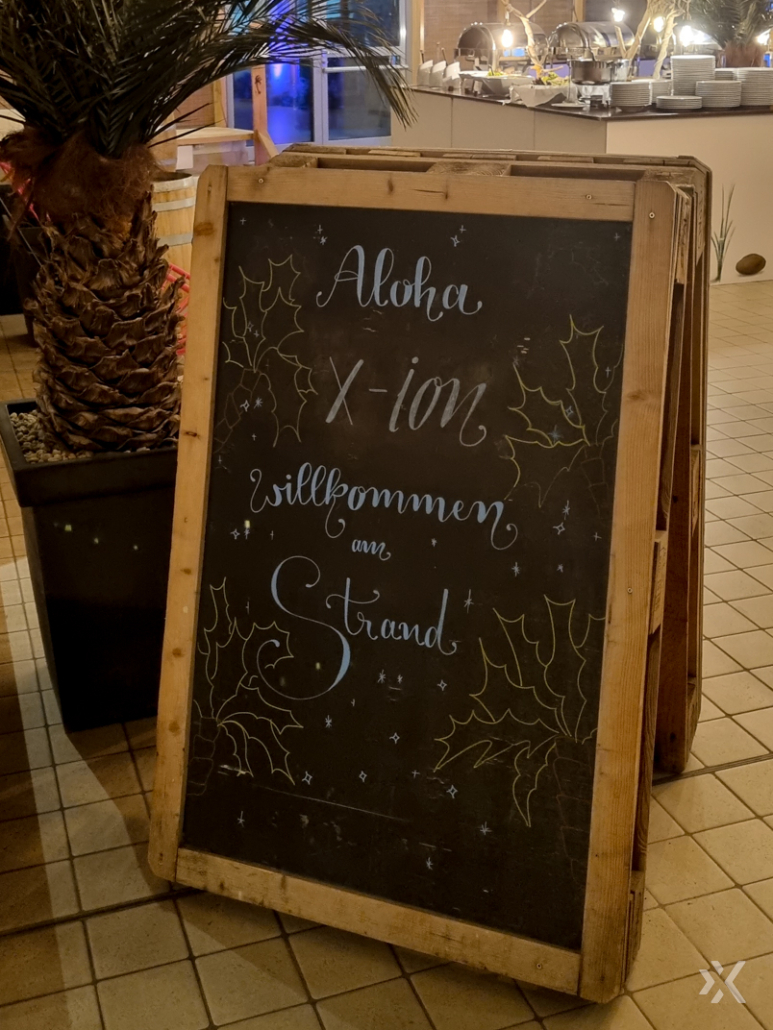 Aloha
X-ion
willkommen
am
Strand